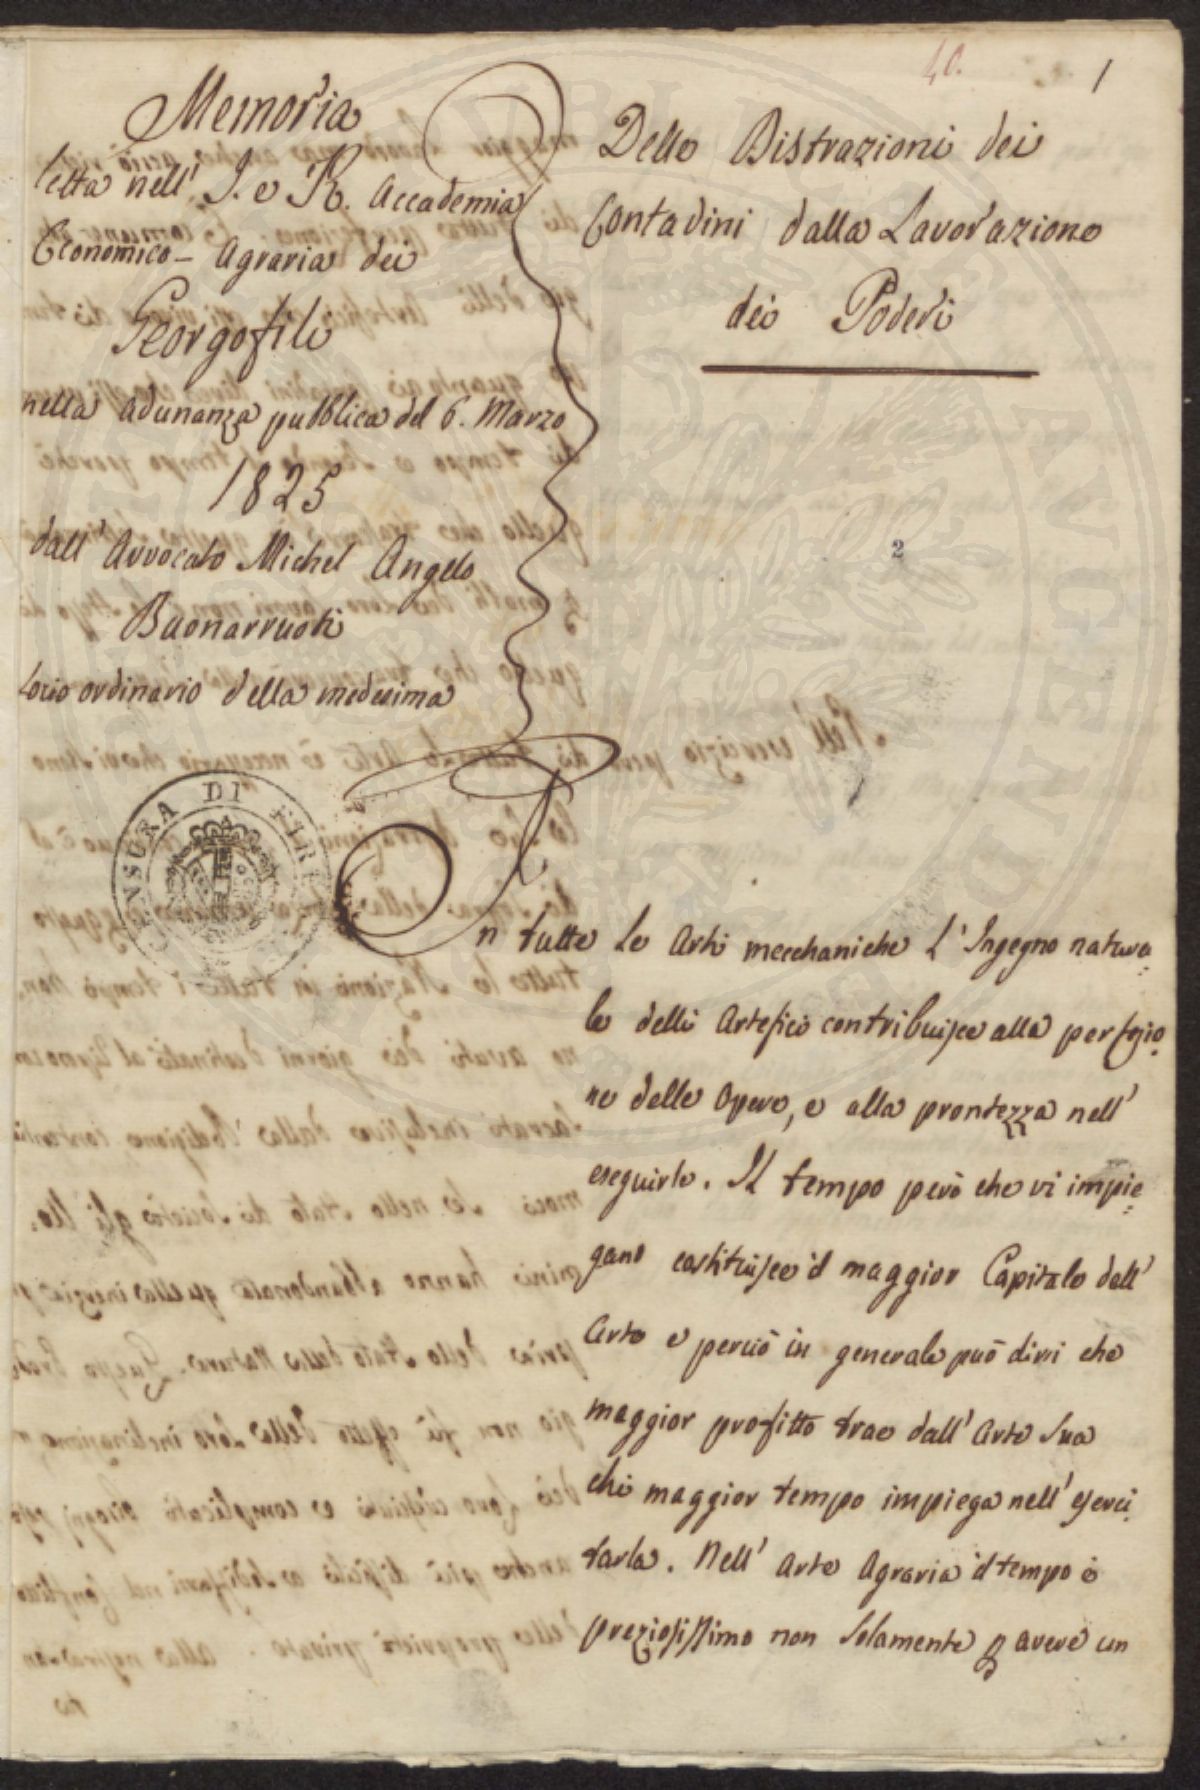 40.
1
Memoria
letta nell' I. e R. Accademia
Economico - Agraria dei
Georgofili
nella adunanza pubblica del 6. Marzo
1825
dall' Avvocato Michel Angelo
Buonarruoti
Socio ordinario della medesima
CENSURA DI FIR
Delle Distrazioni dei
Contadini dalla Lavorazione
dei Poderi
2
In tutte le Arti mecchaniche l'Ingegno natura=
le delli Artefici contribuisce alla perfezio=
ne delle Opere, e alla prontezza nell'
eseguirle. Il tempo però che vi impie=
gano costituisce il maggior Capitale dell'
Arte e perciò in generale può dirsi che
maggior profitto trae dall' Arte sua
chi maggior tempo impiega nell' eserci=
tarla. Nell' Arte Agraria il tempo è
preziosissimo non solamente p avere un